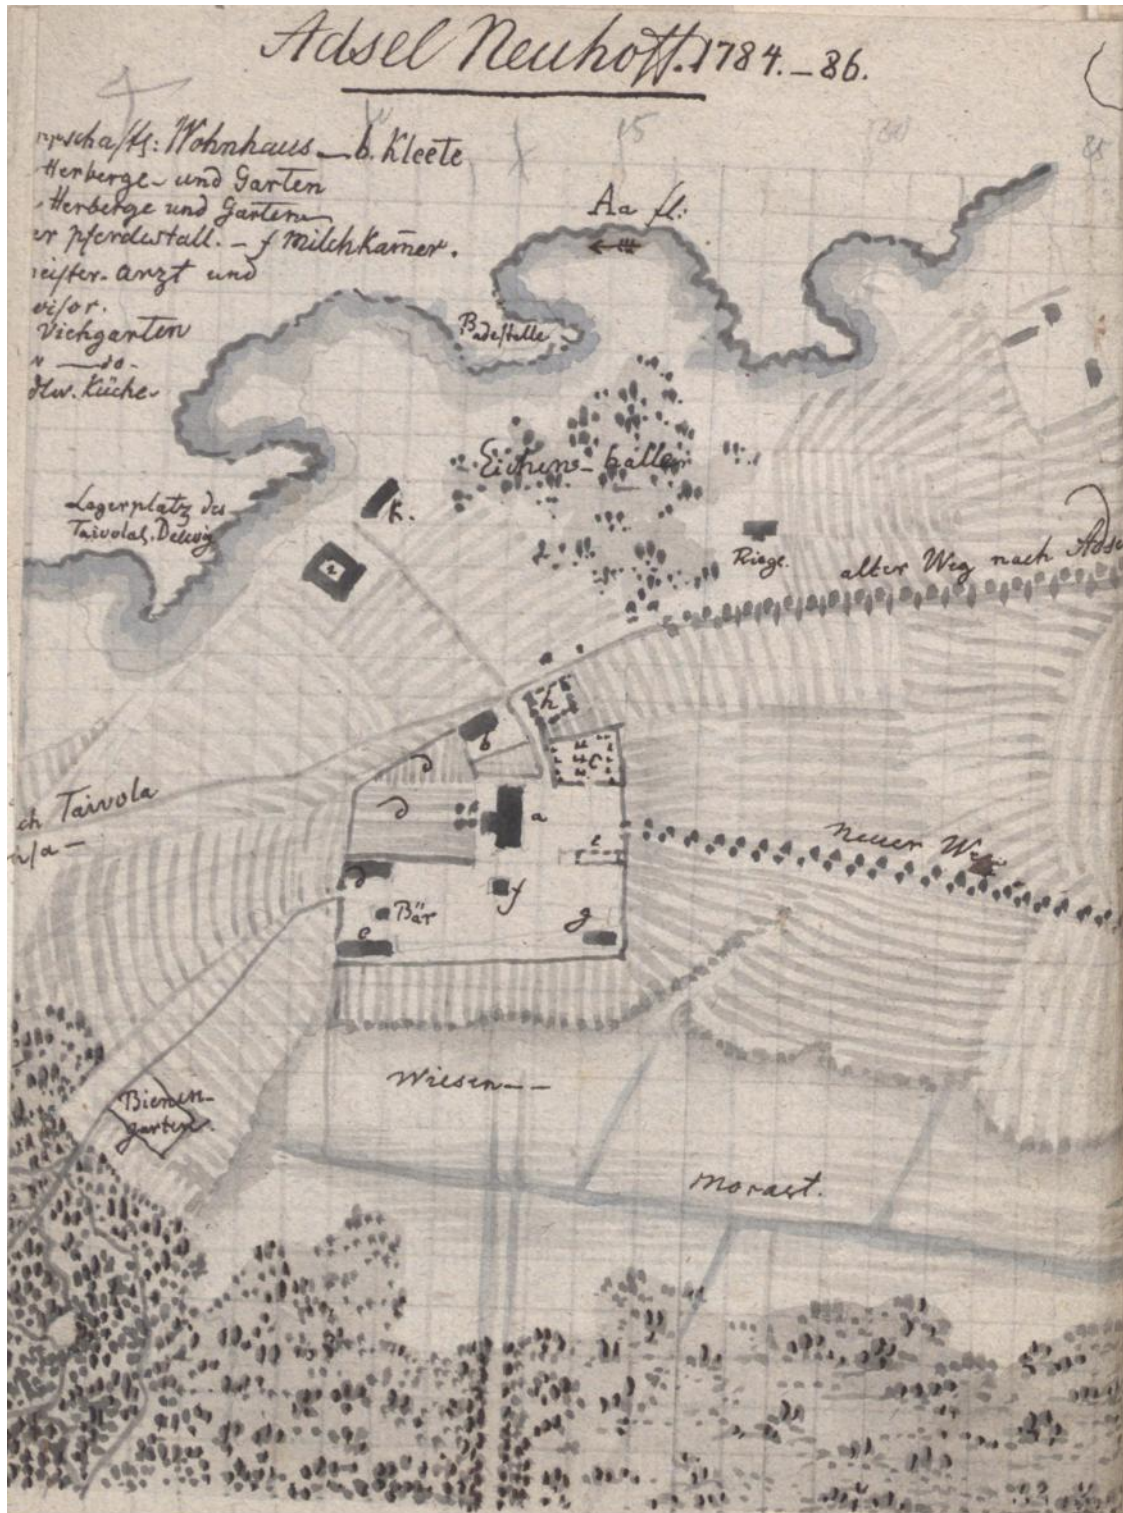 Adsel Neuhoff. 1784. – 86.
Wohnhaus – b. Kleete
Herberge und Garten
Herberge und Garten
er pferdestall. – f Milchkam̄er.
eister. Arzt und
visor.
Viehgarten
do.
Küche
15
Aa fl:
Badestelle
Eichen-
Lagerplatz des
K.
Riege.
alter Weg nach Adse
h
b
c
d
ch Taivola
d
a
Neuer Weg
d
f
Bär
e
g
Wiesen – –
Bienen-
garten.
Morast.